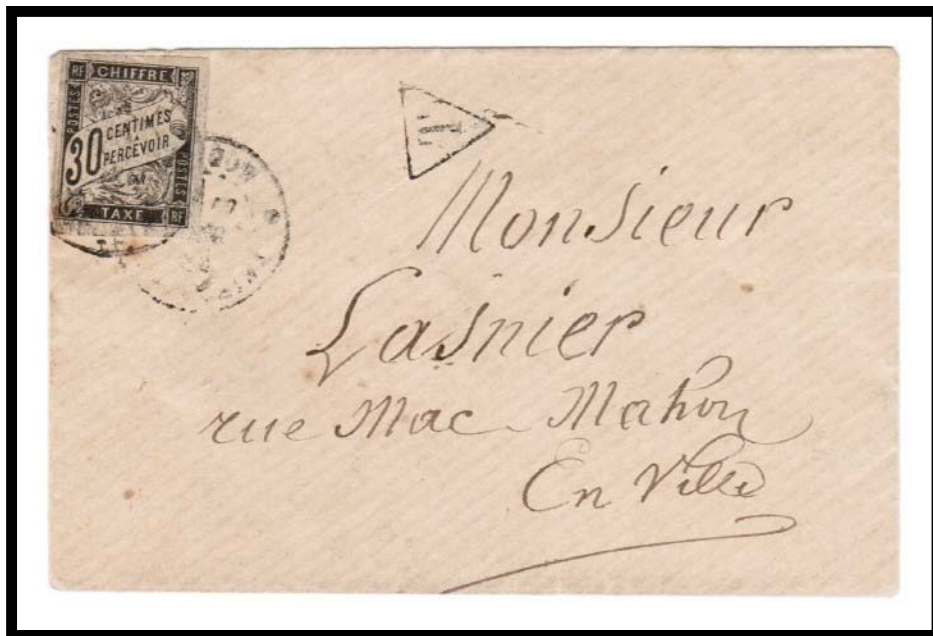 RF CHIFFRE
POSTES
30 CENTIMES
À
PERCEVOIR
POSTES
TAXE RF
T
Monsieur
Lasnier
rue Mac-Mahon
En Ville